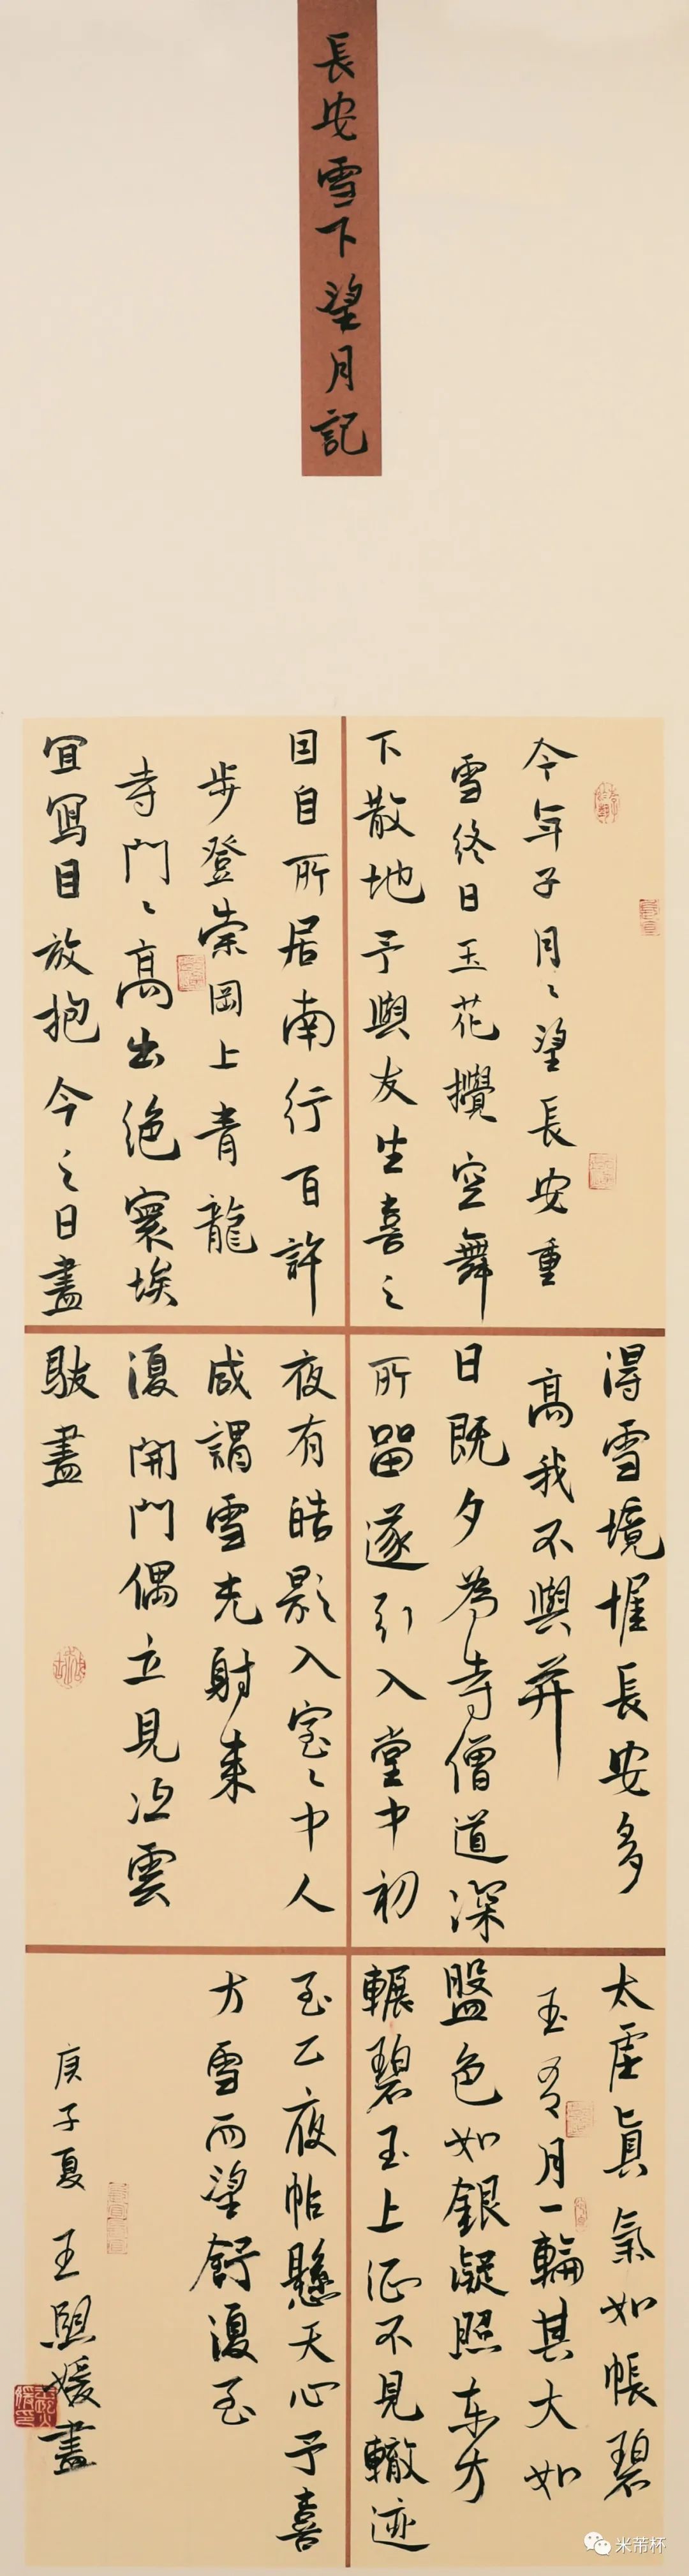 長安雪下望月記
今年子月〻望長安重
雪終日玉花攪空舞
下散地予與友生喜之
因自所居南行百許
步登崇岡上青龍
寺門〻高出絶寰埃
宜寫目放抱今之日盡
得雪境惟長安多
高我不與并
日既夕為寺僧道深
所留遂引入堂中初
夜有皓影入室〻中人
咸謂雪光射來
復開門偶立見冱雲
駁盡
太虛真氣如帳碧
玉有月一輪其大如
盤色如銀凝照東方
輾碧玉上征不見轍迹
至乙夜帖懸天心予喜
方雪而望舒復至
庚子夏 王熙媛書
米芾杯